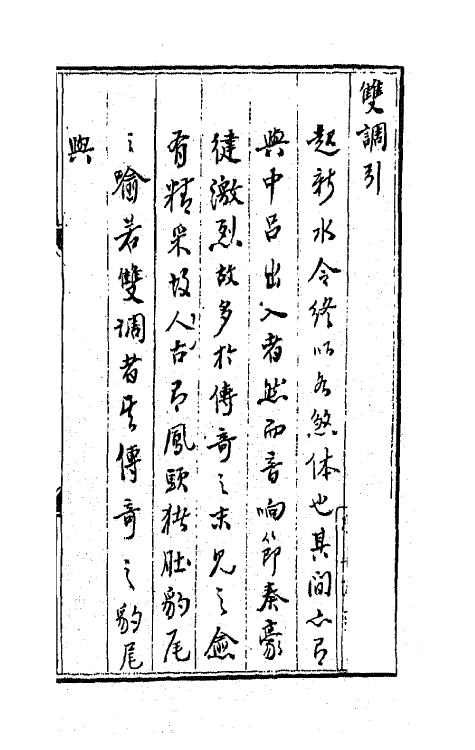 雙調引
起新水令終以各煞体也其間亦有
與中呂出入者然而音响節奏豪
健激烈故多於傳奇之末見之僉
有精采故人古有鳳頭猪肚豹尾
之喻若雙調者其傳奇之豹尾
與